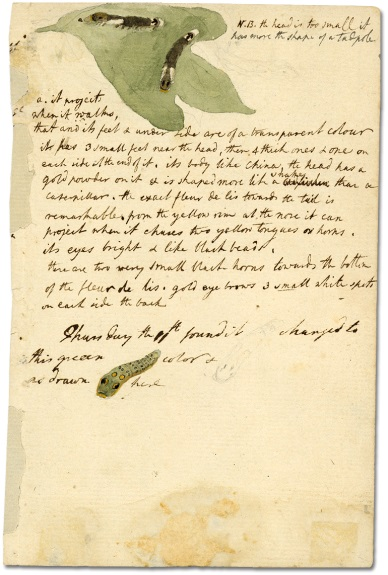 N.B. the head is too small it
has more the shape of a tadpole
a. it project
when it walks,
that and its feet & under side are of a transparent colour
its has 3 small feet near the head, then 4 thick ones none on
each side of the end of it. its body like China, the head has a
gold powder on it & is shaped more like a snake than a
caterpillar. the exact fleur de lis towards the tail is
remarkable. from the yellow rim at the nose it can
project when it chuses two yellow tongues or horns.
its eyes bright & like black beads.
there are two very small black horns towards the bottom
of the fleur de lis. gold eye brows 3 small white spots
on each side the back
Thursday the 11th found it changed to
this green color &
as drawn here